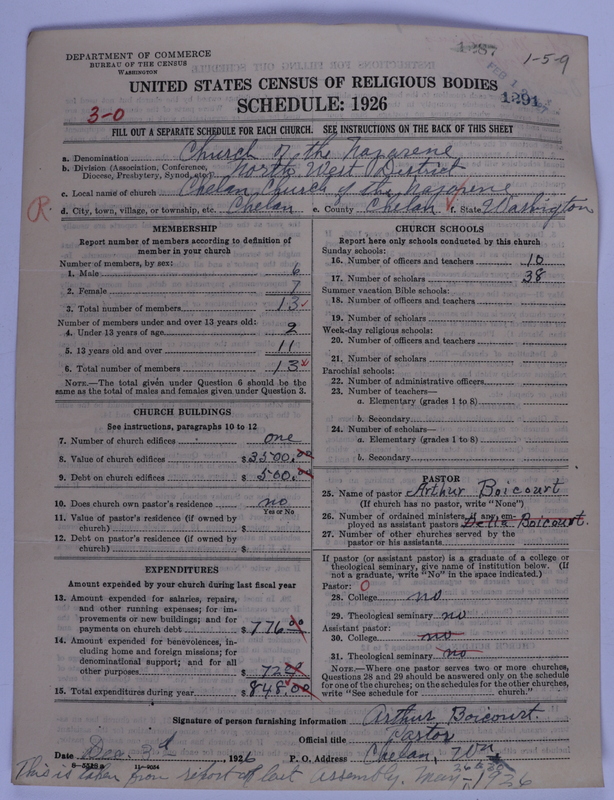 DEPARTMENT OF COMMERCE
BUREAU OF THE CENSUS
WASHINGTON
1287
1-5-9
FEB 1
1291
UNITED STATES CENSUS OF RELIGIOUS BODIES
SCHEDULE: 1926
3-0
FILL OUT A SEPARATE SCHEDULE FOR EACH CHURCH. SEE INSTRUCTIONS ON THE BACK OF THIS SHEET
a. Denomination Church of the Nazarene
b. Division (Association, Conference, Diocese, Presbytery, Synod, etc.) North West District
c. Local name of church Chelan Church of the Nazarene
R. d. City, town, village, or township, etc. Chelan e. County Chelan f. State Washington
MEMBERSHIP
Report number of members according to definition of member in your church
Number of members, by sex:
1. Male 6
2. Female 7
3. Total number of members 13
Number of members under and over 13 years old:
4. Under 13 years of age 2
5. 13 years old and over 11
6. Total number of members 13
NOTE.—The total given under Question 6 should be the same as the total of males and females given under Question 3.
CHURCH BUILDINGS
See instructions, paragraphs 10 to 12
7. Number of church edifices one
8. Value of church edifices $3500.00
9. Debt on church edifices $500.00
10. Does church own pastor's residence no
Yes or No
11. Value of pastor's residence (if owned by church) $
12. Debt on pastor's residence (if owned by church) $
EXPENDITURES
Amount expended by your church during last fiscal year
13. Amount expended for salaries, repairs, and other running expenses; for improvements or new buildings; and for payments on church debt $776.00
14. Amount expended for benevolences, including home and foreign missions; for denominational support; and for all other purposes $72
15. Total expenditures during year $848.00
CHURCH SCHOOLS
Report here only schools conducted by this church
Sunday schools:
16. Number of officers and teachers 10
17. Number of scholars 38
Summer vacation Bible schools:
18. Number of officers and teachers
19. Number of scholars
Week-day religious schools:
20. Number of officers and teachers
21. Number of scholars
Parochial schools:
22. Number of administrative officers
23. Number of teachers—
a. Elementary (grades 1 to 8)
b. Secondary
24. Number of scholars—
a. Elementary (grades 1 to 8)
b. Secondary
PASTOR
25. Name of pastor Arthur Boicourt
(If church has no pastor, write "None")
26. Number of ordained ministers, if any, employed as assistant pastors Della Boicourt.
27. Number of other churches served by the pastor or his assistants
If pastor (or assistant pastor) is a graduate of a college or theological seminary, give name of institution below. (If not a graduate, write "No" in the space indicated.)
Pastor: 0
28. College no
29. Theological seminary no
Assistant pastor:
30. College no
31. Theological seminary no
NOTE.—Where one pastor serves two or more churches, Questions 28 and 29 should be answered only on the schedule for one of the churches; on the schedules for the other churches, write "See schedule for church."
Signature of person furnishing information Arthur Boicourt.
Official title Pastor
Date Dec. 3d 1926 P. O. Address Chelan, Wn
This is taken from report of last assembly. May 1926